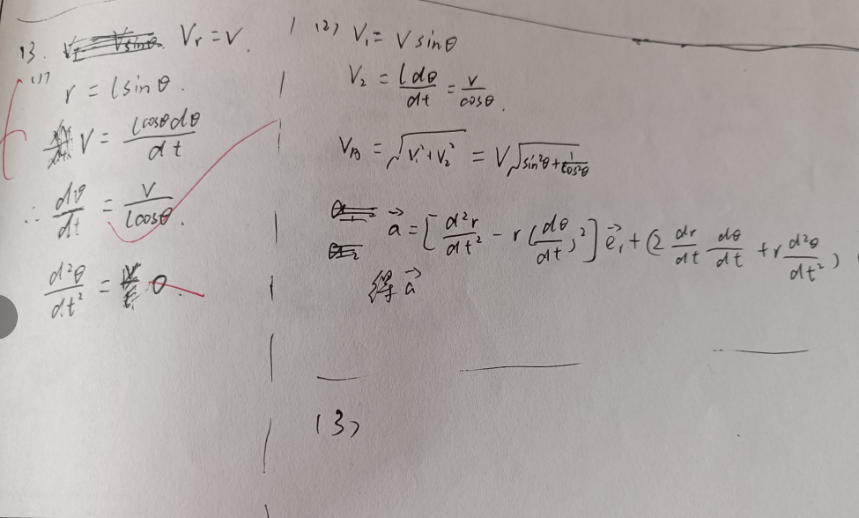 13. Vr = V.
(1) r = l sinθ.
V = lcosθdθ / dt
∴ dθ/dt = V / lcosθ.
d²θ/dt² = 0.
(2) V₁ = V sinθ
V₂ = l dθ / dt = V / cosθ.
V_B = √(V₁² + V₂²) = V√(sin²θ + 1/cos²θ)
a⃗ = [d²r/dt² - r(dθ/dt)²] e⃗r + (2 dr/dt dθ/dt + r d²θ/dt²)
得 a⃗
(3)